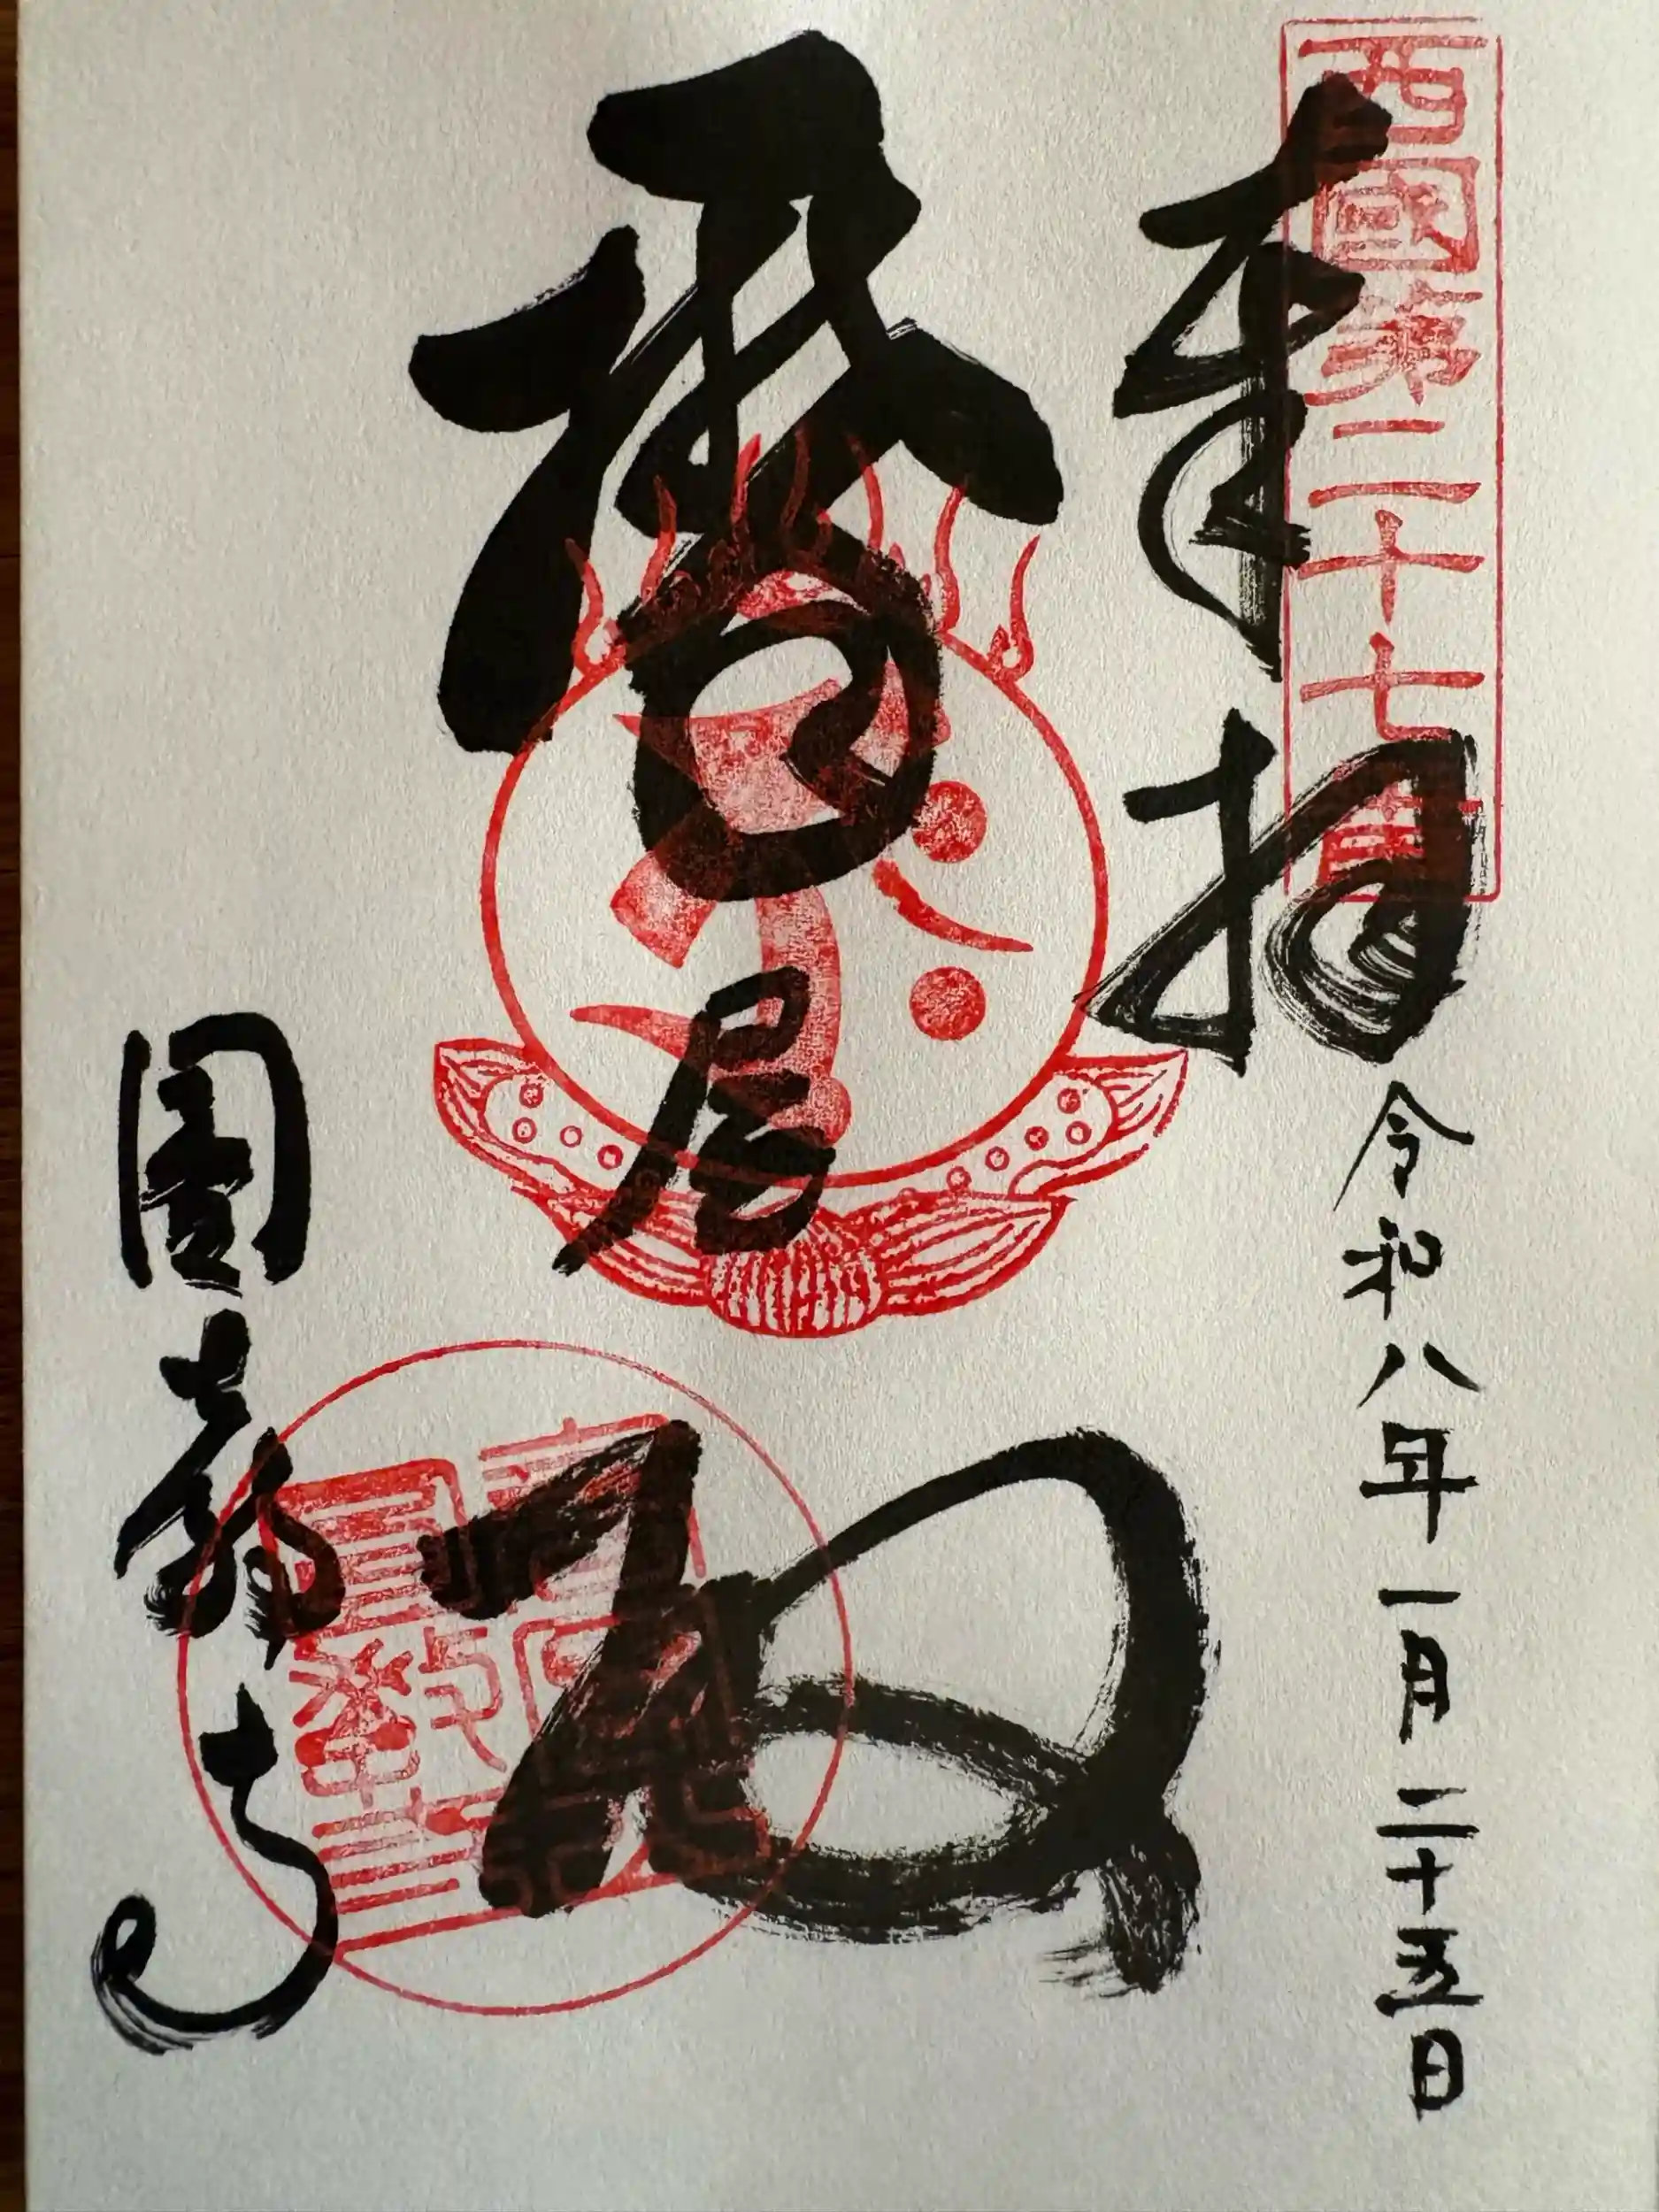 西國第二十七番
奉拝
令和八年一月二十五日
摩尼殿
圓教寺